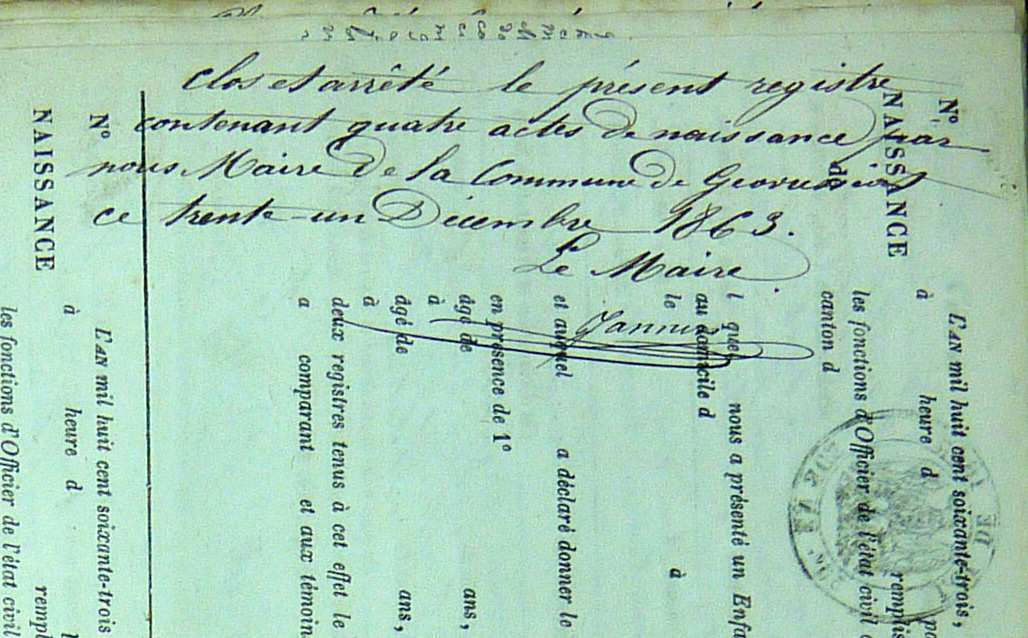 clos et arrêté le présent registre
contenant quatre actes de naissance par
nous Maire de la Commune de
ce trente-un Décembre 1863.
Le Maire
N°
NAISSANCE
L'AN mil huit cent soixante-trois,
à heure d
les fonctions d'Officier de l'état civil
canton d
l quel nous a présenté un Enfa
au domicile d
le à
et auquel a déclaré donner le
en présence de 1°
âgé de ans,
à
âgé de ans,
à
deux registres tenus à cet effet le
a comparant et aux témoin
N°
NAISSANCE
L'AN mil huit cent soixante-trois
à heure d
les fonctions d'Officier de l'état civil